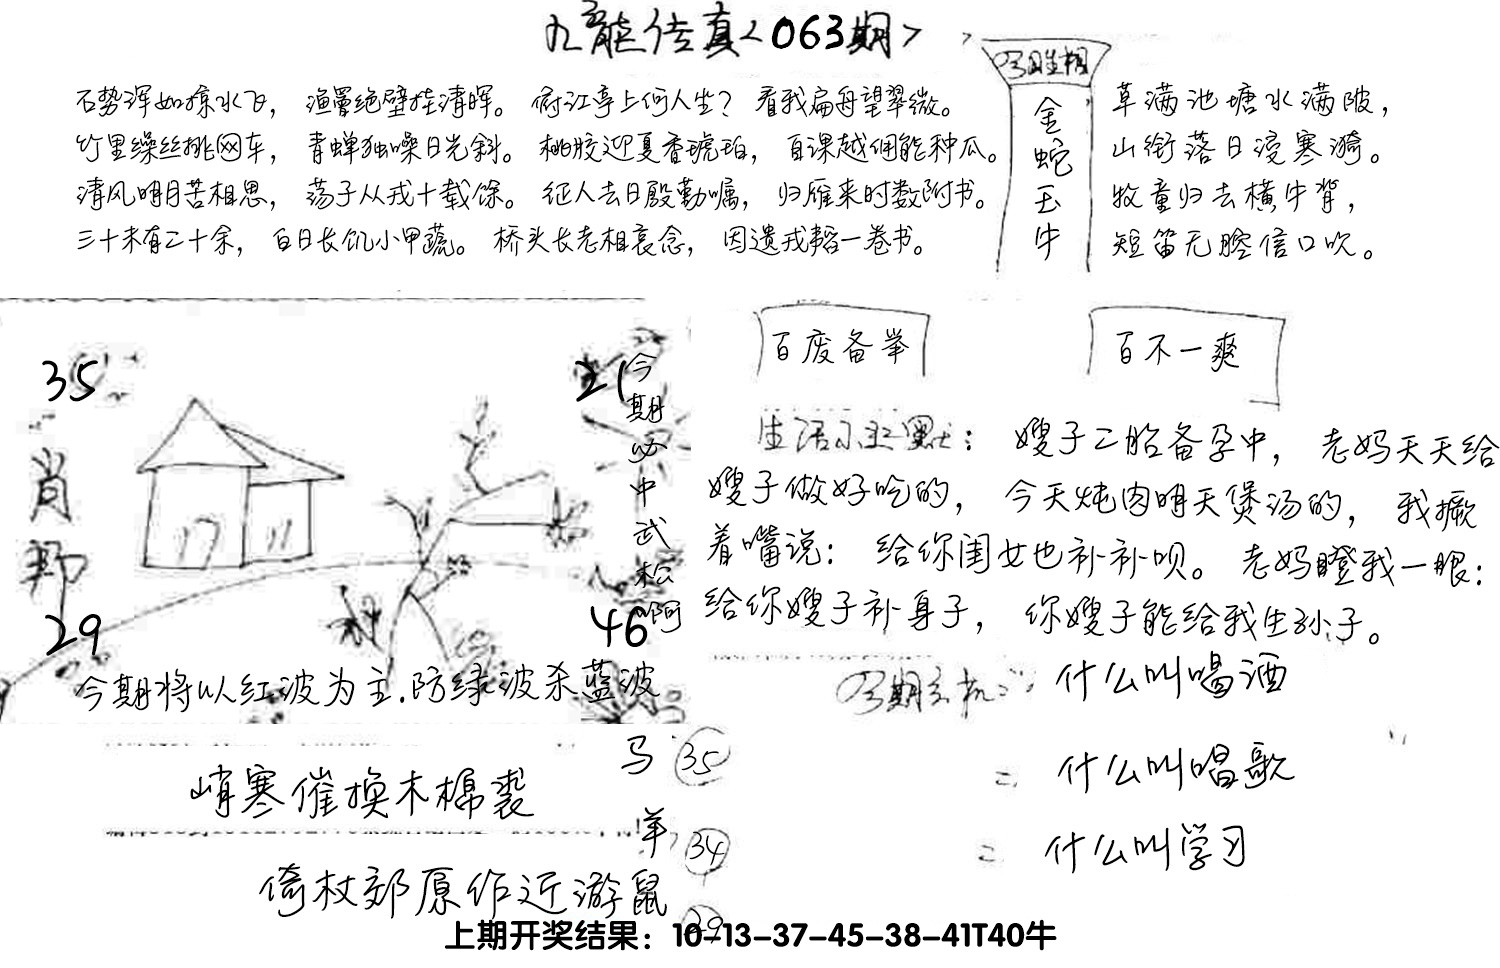 九龙传真<063期>
石势浑如掠水飞，渔罾绝壁挂清晖。俯江亭上何人坐？看我扁舟望翠微。
竹里缲丝挑网车，青蝉独噪日光斜。桃胶迎夏香琥珀，自课越佣能种瓜。
清风明月苦相思，荡子从戎十载馀。征人去日殷勤嘱，归雁来时数附书。
三十未有二十余，白日长饥小甲蔬。桥头长老相哀念，因遗戎韬一卷书。
金蛇玉牛
草满池塘水满陂，
山衔落日浸寒漪。
牧童归去横牛背，
短笛无腔信口吹。
百废备举
百不一爽
35
21
肖
29
46
今期必中武松啊
今期将以红波为主.防绿波杀蓝波
生活小幽默：嫂子二胎备孕中，老妈天天给
嫂子做好吃的，今天炖肉明天煲汤的，我撅
着嘴说：给你闺女也补补呗。老妈瞪我一眼：
给你嫂子补身子，你嫂子能给我生孙子。
什么叫喝酒
二 什么叫唱歌
二 什么叫学习
马 35
羊 34
29
峭寒催换木棉裘
倚杖郊原作近游鼠
上期开奖结果：10-13-37-45-38-41T40牛